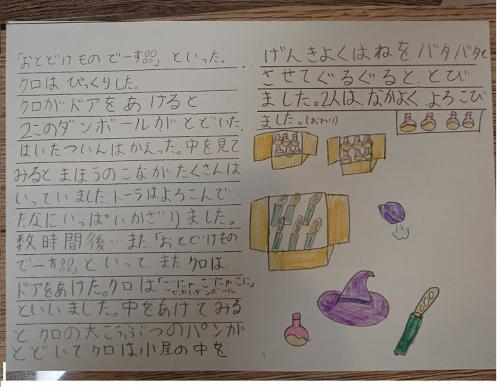 「おとどけものでーす○○」といった。
クロはびっくりした。
クロがドアをあけると
2このダンボールがとどいた。
はいたついんはかえった。中を見て
みるとまほうのこながたくさんは
いっていました。トーラはよろこんで
たなにいっぱいかざりました。
数時間後…また「おとどけもの
でーす○○」といって、またクロは、
ドアをあけた。クロは「ごにゃごにゃごに」
といいました。中をあけてみる
とクロの大こうぶつのパンが
とどいてクロは小屋の中を
げんきよくはねをバタバタと
させてぐるぐると、とび
ました。2人は、なかよくよろこび
ました。(おわり)